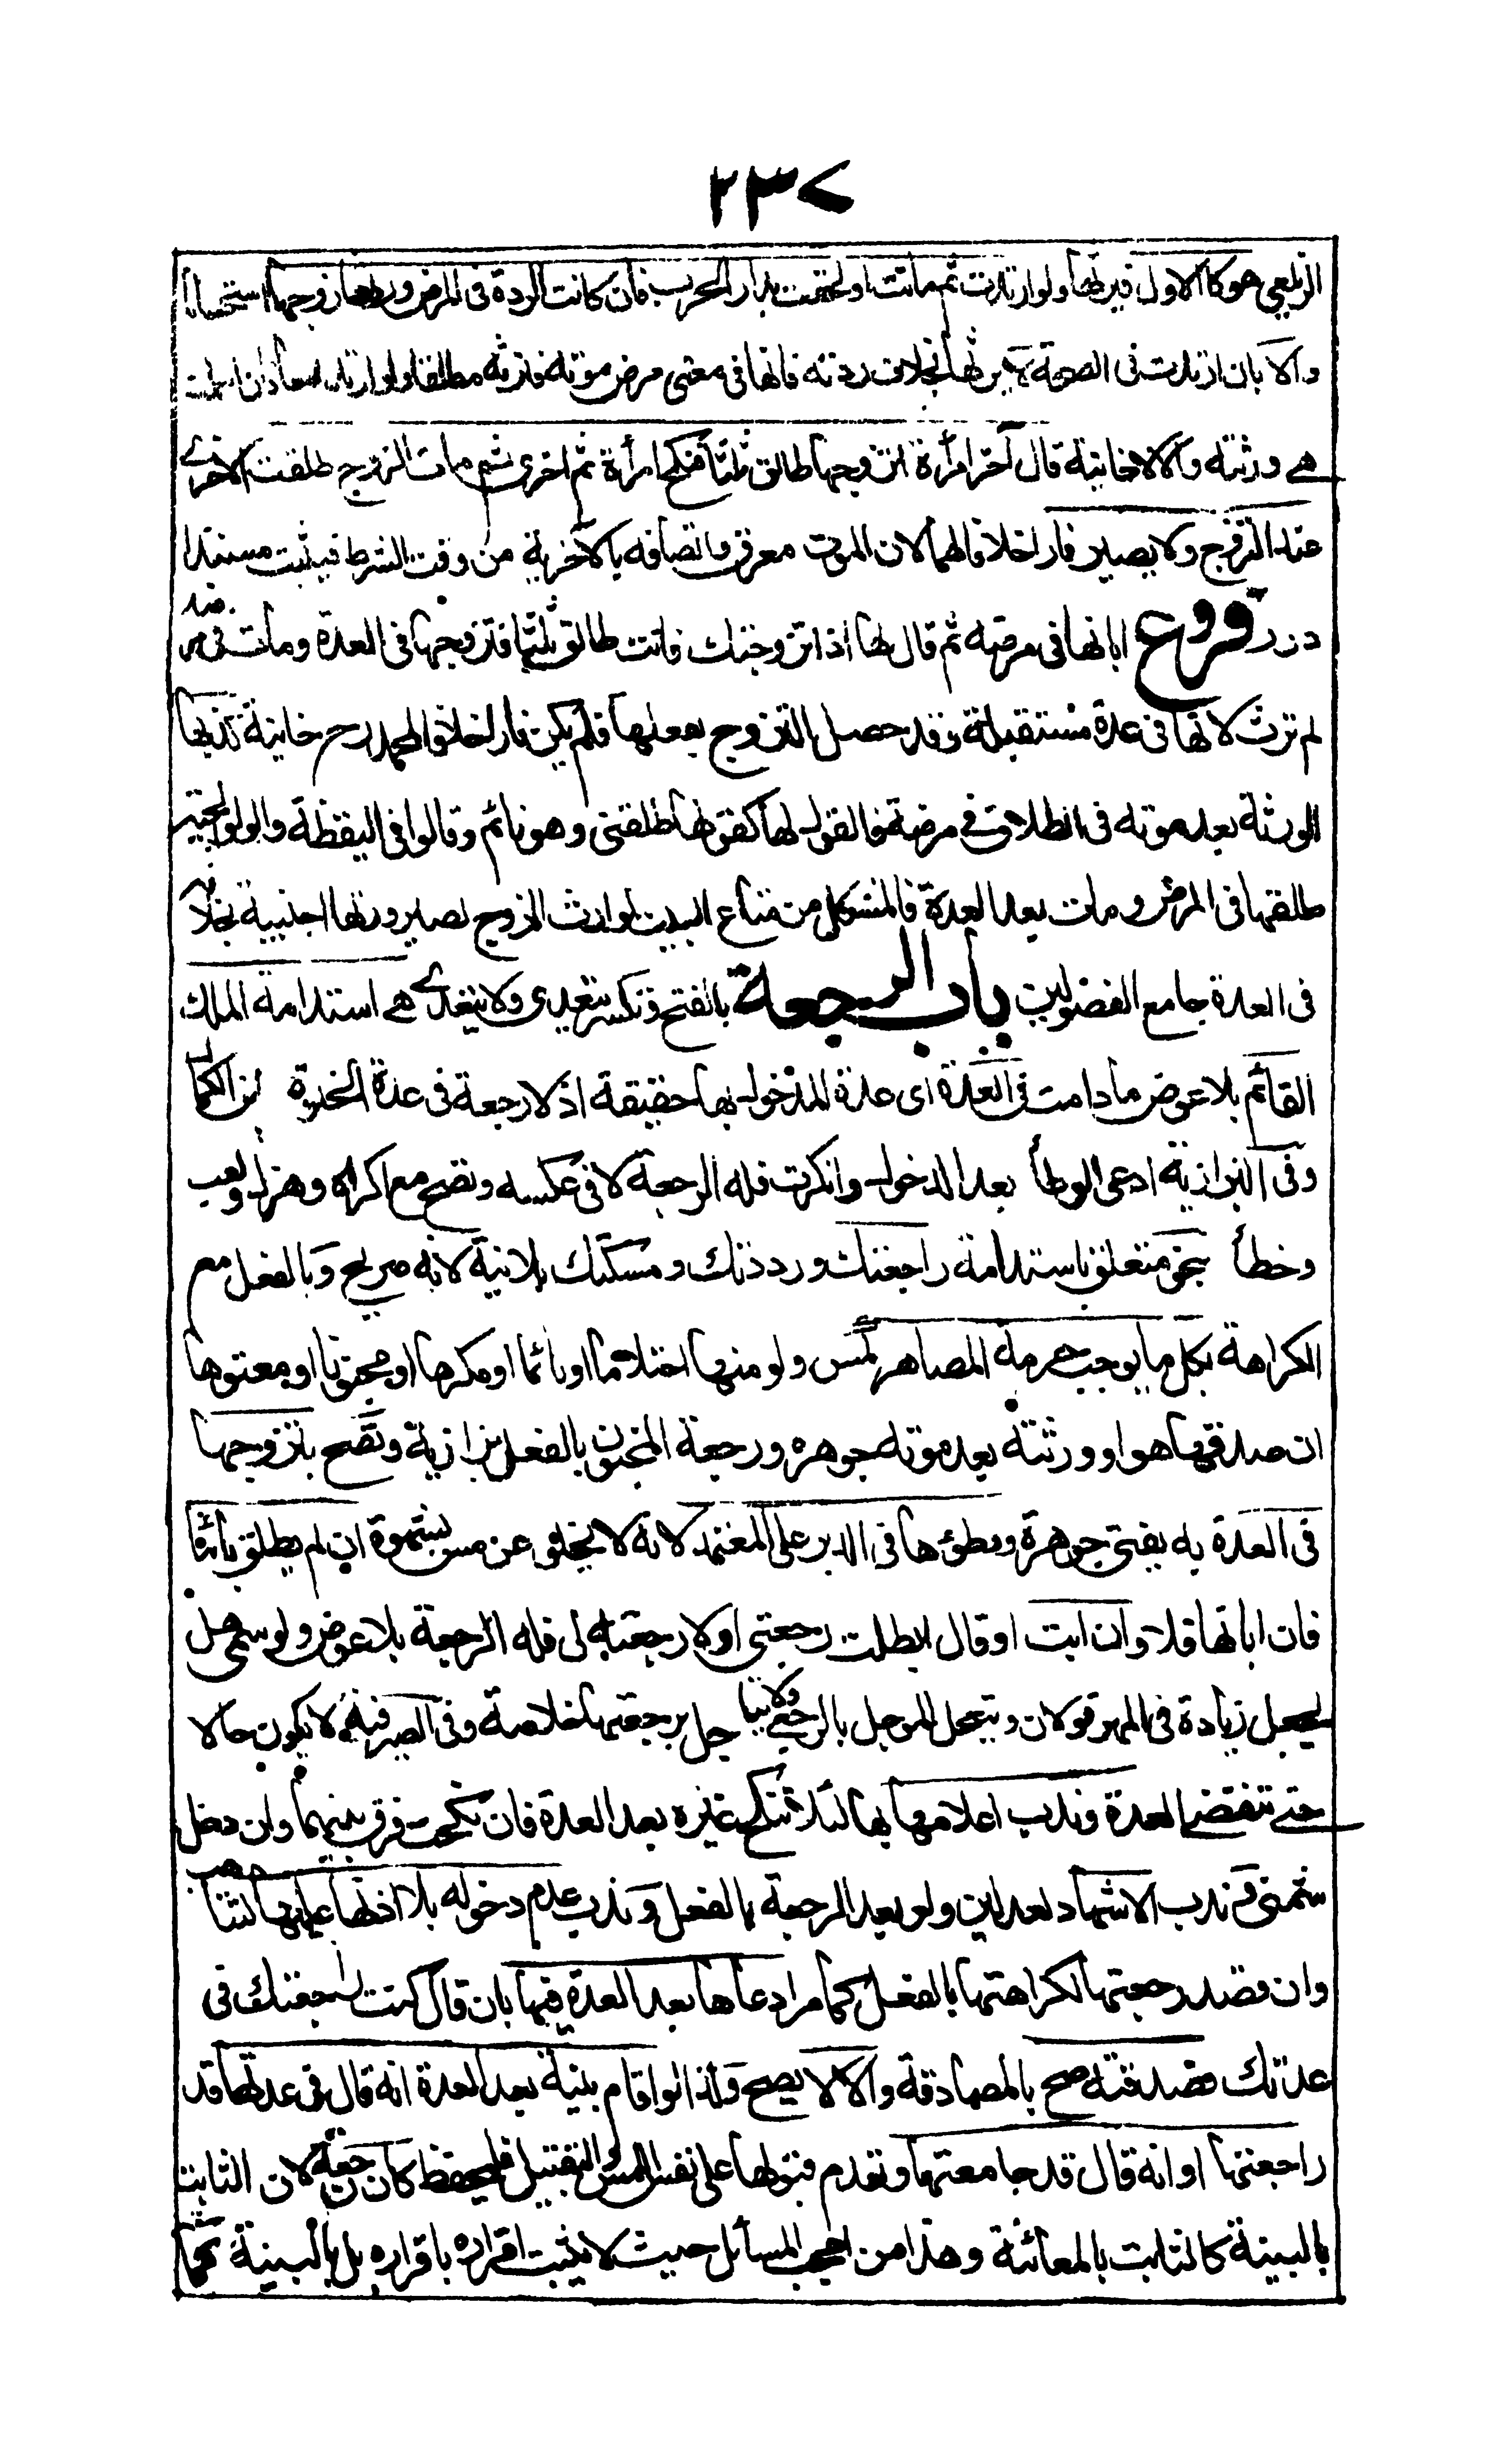 ٢٣٧
الزيلعي هو كالاول فيرثها ولو ارتدت ثم ماتت او لحقت بدار الحرب فان كانت الردة فى المرض ورثها زوجها استحسانا
والا بان ارتدت فى الصحة لا يرثها بخلاف ردته فانها فى معنى مرض موته فترثه مطلقا ولو ارتدا معا فان اسلمت
هى ورثته والا لا خانية قال آخر امرأة اتزوجها طالق ثلثا فنكح امرأة ثم اخرى ثم مات الزوج طلقت الاخرى
عند التزوج ولا يصير فارا خلافا لهما لان الموت معرف واتصافه بالآخرية من وقت الشرط فيثبت مستندا
درر فروع ابانها فى مرضه ثم قال لها اذا تزوجتك فانت طالق ثلثا فتزوجها فى العدة ومات فى مرضه
لم ترث لانها فى عدة مستقبلة وقد حصل التزوج بفعلها فلم يكن فارا خلافا لمحمد رح خانية كذبها
الورثة بعد موته فى الطلاق فى مرضه فالقول لها كقولها طلقنى وهو نائم وقالوا فى اليقظة والولوالجية
طلقها فى المرض ومات بعد العدة فالمشكل من متاع البيت لوارث الزوج لصيرورتها اجنبية بخلافه
فى العدة جامع الفصولين باب الرجعة بالفتح وتكسر يتعدى ولا يتعدى هى استدامة الملك
القائم بلا عوض ما دامت فى العدة اى عدة المدخول بها حقيقة اذ لا رجعة فى عدة الخلوة ابن الكمال
وفى البزازية ادعى الوطأ بعد الدخول وانكرت فله الرجعة لا فى عكسه وتصح مع اكراه وهزل ولعب
وخطأ بنحو متعلق باستدامة راجعتك ورددتك ومسكتك بلا نية لانه صريح وبالفعل مع
الكراهة بكل ما يوجب حرمة المصاهرة كمس ولو منها اختلاسا او نائما او مكرها او مجنونا او معتوها
ان صدقها هو او ورثته بعد موته جوهره ورجعة المجنون بالفعل بزازية وتصح بتزوجها
فى العدة به يفتى جوهرة ووطئها فى الدبر على المعتمد لانه لا يخلو عن مس بشهوة ان لم يطلق بائنا
فان ابانها فلا وان ابت او قال ابطلت رجعتى او لا رجعة لى فله الرجعة بلا عوض ولو سمى هل
يجعل زيادة فى المهر قولان ويتعجل المؤجل بالرجعى ولا يتاجل برجعتها خلاصة وفى الصيرفية لا يكون حالا
حتى تنقضى العدة وندب اعلامها بها لئلا تنكح غيره بعد العدة فان نكحت فرق بينهما وان دخل
شمنى وندب الاشهاد بعدلين ولو بعد الرجعة بالفعل وندب عدم دخوله بلا اذنها عليها لتتأهب
وان قصد رجعتها لكراهتها بالفعل كما مر ادعاها بعد العدة فيها بان قال كنت راجعتك فى
عدتك فصدقته صح بالمصادقة والا لا يصح وكذا لو اقام بينة بعد العدة انه قال فى عدتها قد
راجعتها او انه قال قد جامعتها وتقدم قبولها على نفس المس والتقبيل فليحفظ كان رجعة لان الثابت
بالبينة كالثابت بالمعائنة وهذا من اعجب المسائل حيث لا يثبت اقراره باقراره بل بالبينة كما